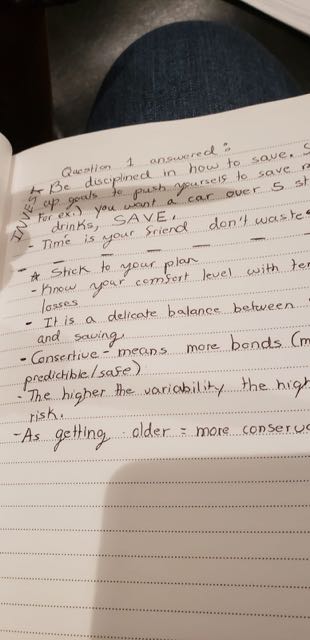 Question 1 answered:
INVEST
* Be disciplined in how to save. S
up goals to push yourself to save
For ex.) you want a car over 5 st
drinks, SAVE.
- Time is your friend don't waste
* Stick to your plan
- Know your comfort level with
losses
- It is a delicate balance between
and saving
- Consertive - means more bonds (m
predictible/safe)
- The higher the variability the high
risk.
- As getting older = more conserv